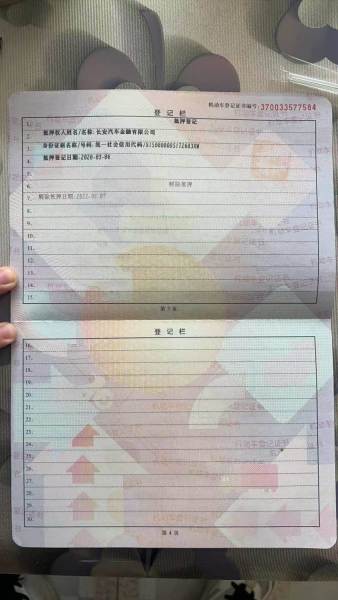 机动车登记证书编号:370033577584
登记栏
1. 抵押登记
2. 抵押权人姓名/名称:长安汽车金融有限公司
3. 身份证明名称/号码:统一社会信用代码/
4. 抵押登记日期:2020-03-06
5.
6. 解除抵押
7. 解除抵押日期:
8.
9.
10.
11.
12.
13.
14.
15.
第3页
登记栏
16.
17.
18.
19.
20.
21.
22.
23.
24.
25.
26.
27.
28.
29.
30.
第4页